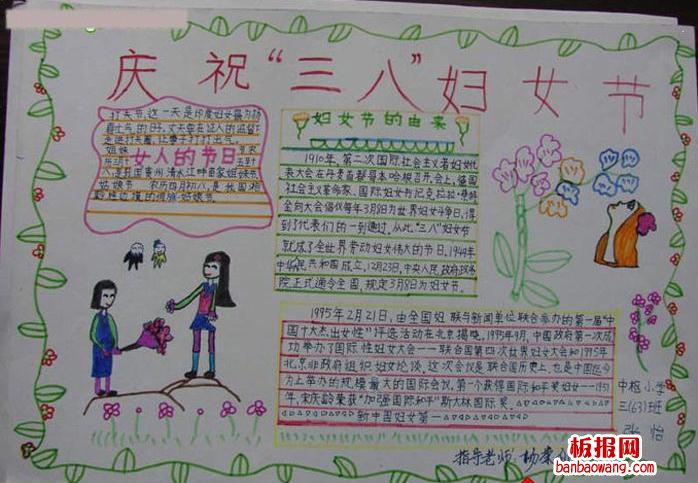 庆祝“三八”妇女节
打夫节,这一天是印度妇女最为扬
眉吐气的日子,丈夫要在证人的监督下
走进打夫蓬,让妻子打打出气。
姐妹
女人的节日
八是我国贵州清水江畔苗家姐妹节
姑姊节 农历四月初八,是我国湘
妇女节的由来
1910年,第二次国际社会主义者妇女代
表大会在丹麦哥本哈根召开,会上,德国
社会主义革命家、国际妇女
向大会倡议每年3月8日为世界妇女
到了代表们的一到通过,从此“三八”妇女节
就成了全世界劳动妇女伟大的节日。1949年
中华人民共和国成立,12月23日,中央人民政府政务
院正式通令全国,规定3月8日为妇女节。
1995年2月21日,由全国妇联与新闻单位联合举办的第一届“中
国十大杰出女性”评选活动在北京揭晓。1995年9月,中国政府第一次成
功举办了国际性妇女大会——联合国第四次世界妇女大会和1995年
北京非政府组织妇女论谈,这次会议是联合国历史上,也是中国迄今
为止举办的规模最大的国际会议。第一个获得国际和平奖妇女——1951
年,宋庆龄荣获“加强国际和平”斯大林国际奖。
新中国妇女第一
中枢小学
三(63)班
张怡
指导老师:杨
板报网
banbaowang.com